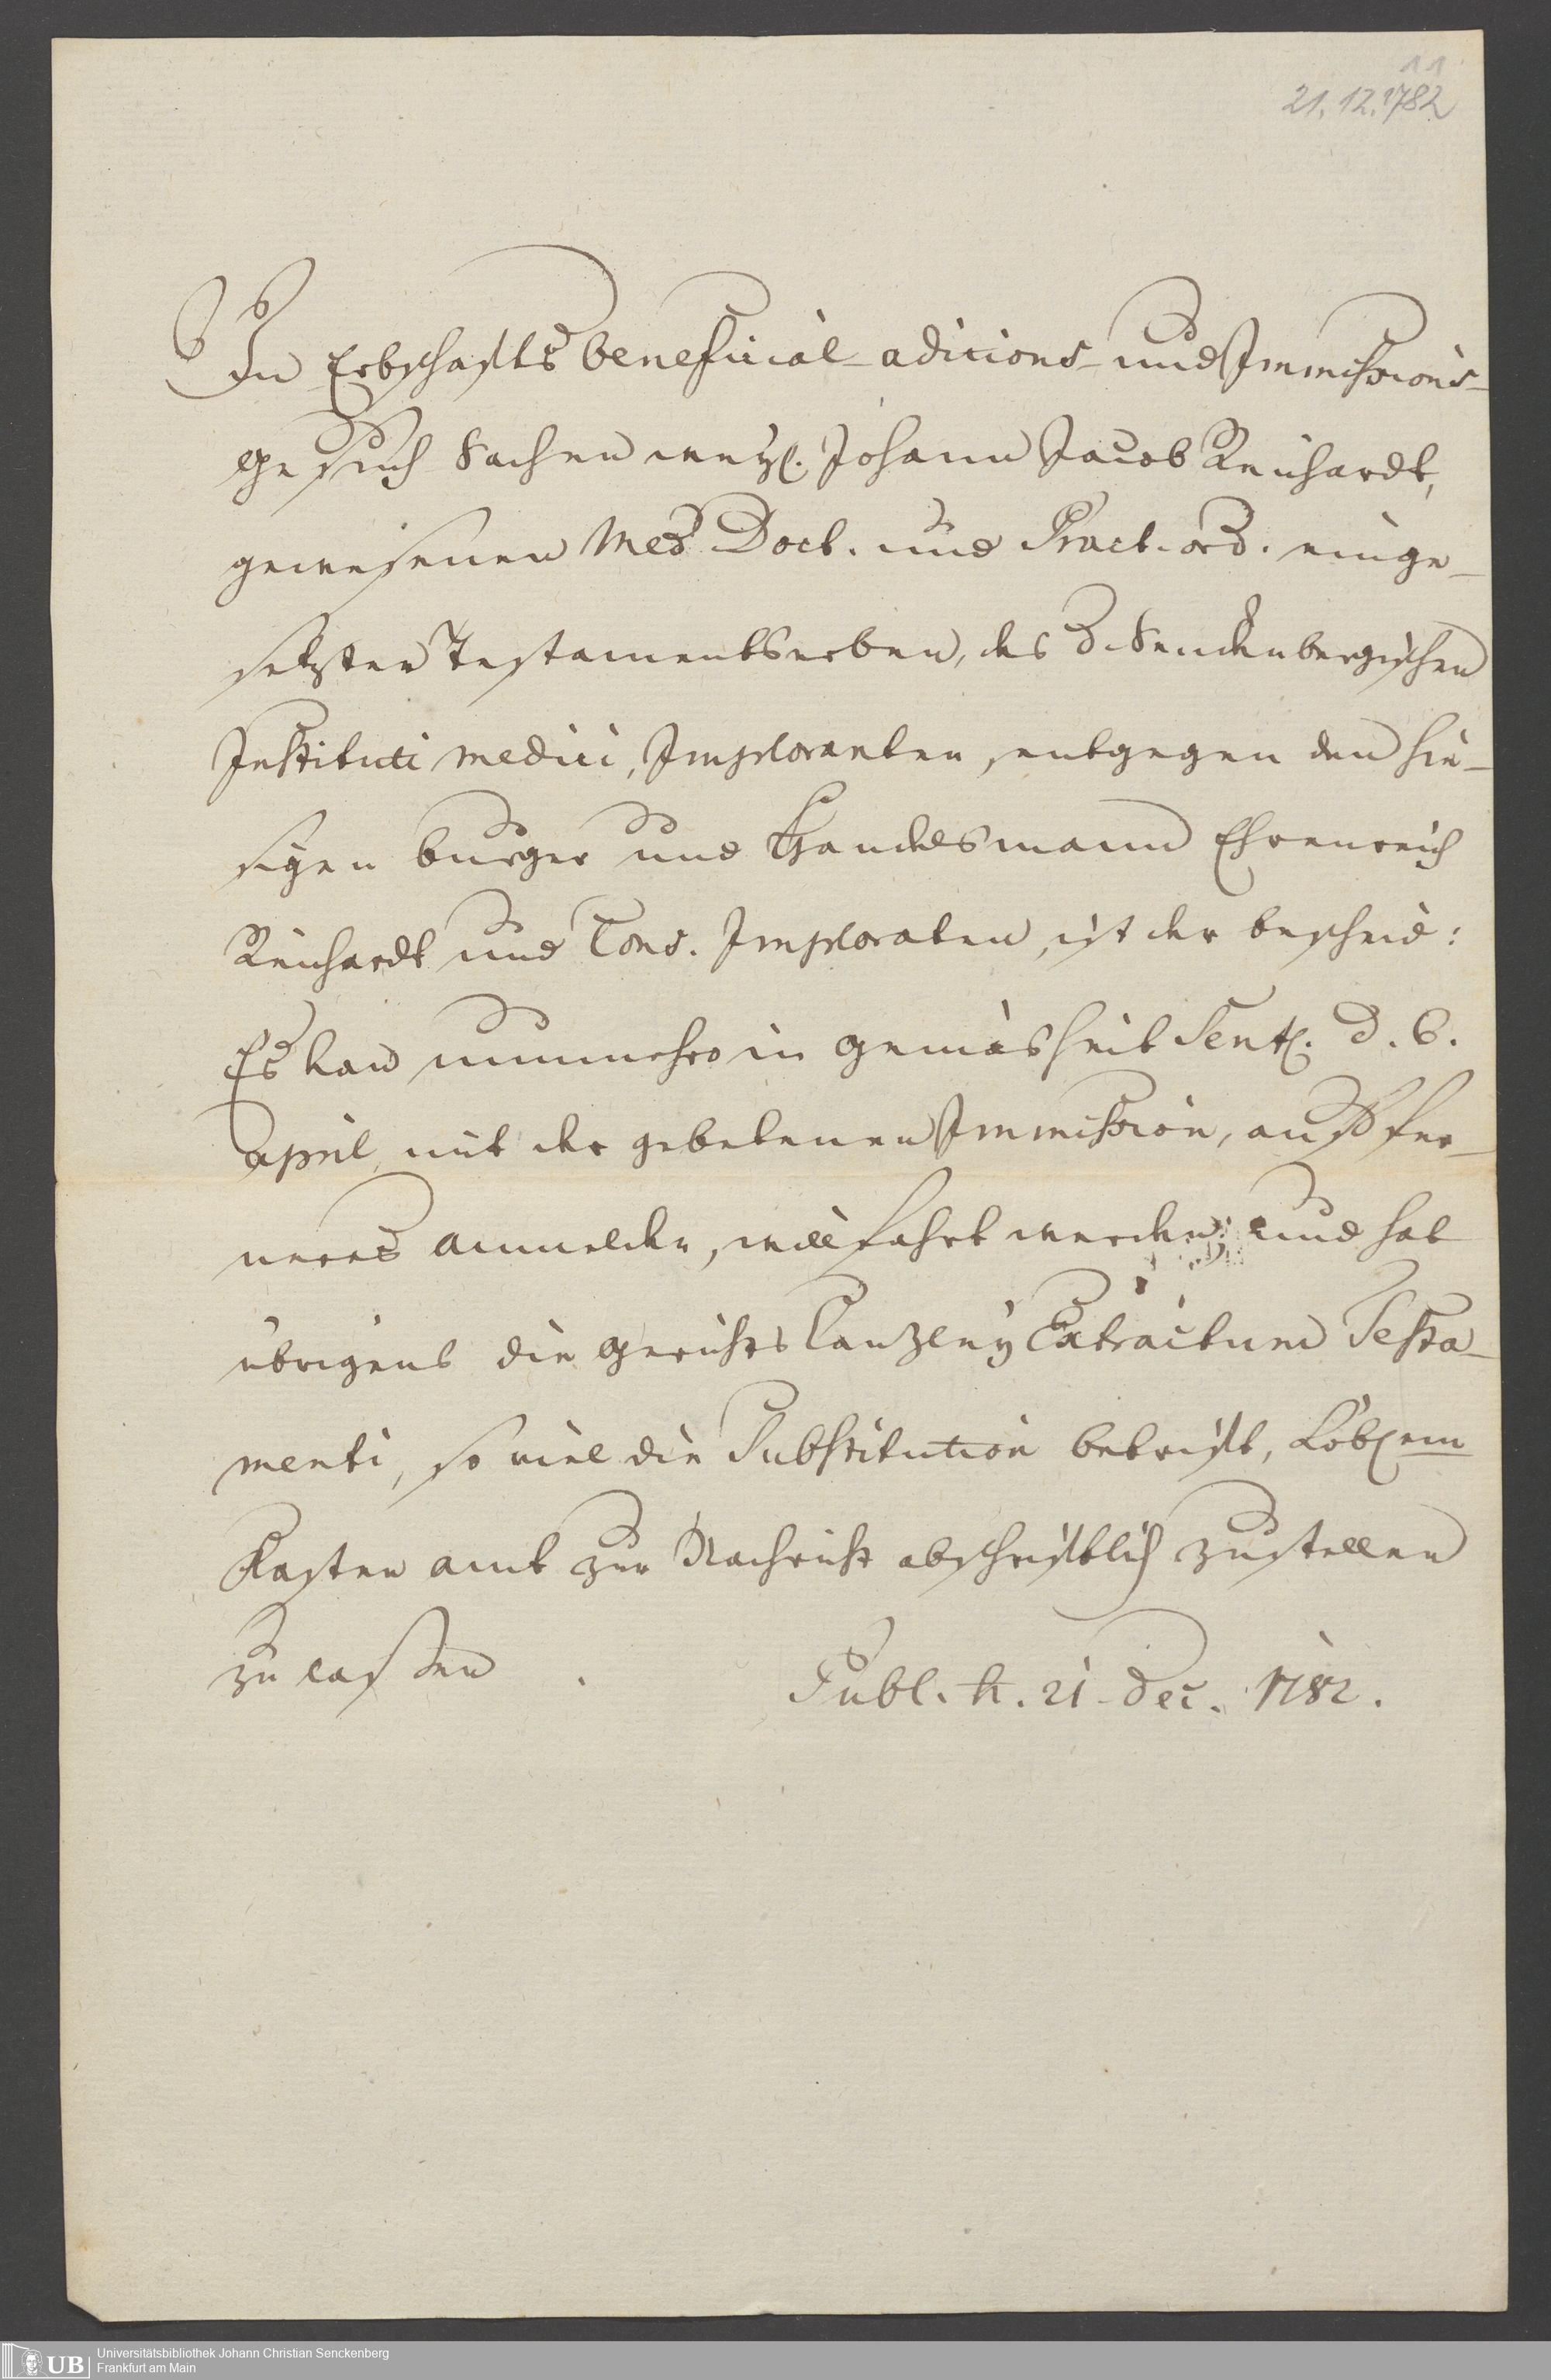 11
21.12.1782
In Erbschafts beneficial- aditions- und Immissions-
Gesuch Sachen weyl. Johann Jacob Reichardt,
gewesenen Med Doct. und Pract. ord. einge-
setzten Testamentserben, des D. Senckenbergischen
Instituti medici, Imploranten, entgegen den hie-
sigen burger und Handelsmann Ehrenreich
Reichardt und Cons. Imploraten, ist der bescheid:
Es kan nunmehro in gemäsheit Sent. d. 6.
april, mit der gebetenen Immission, auf fer-
neres anmelden, willfahrt werden; und hat
übrigens die Gerichts Canzley Extractum Testa-
menti, so viel die Substitution betrifft, Löbl. em
Kasten amt zur Nachricht abschriftlich zustellen
zu laßen.
Publ. h. 21. Dec. 1782.
UB
Universitätsbibliothek Johann Christian Senckenberg
Frankfurt am Main